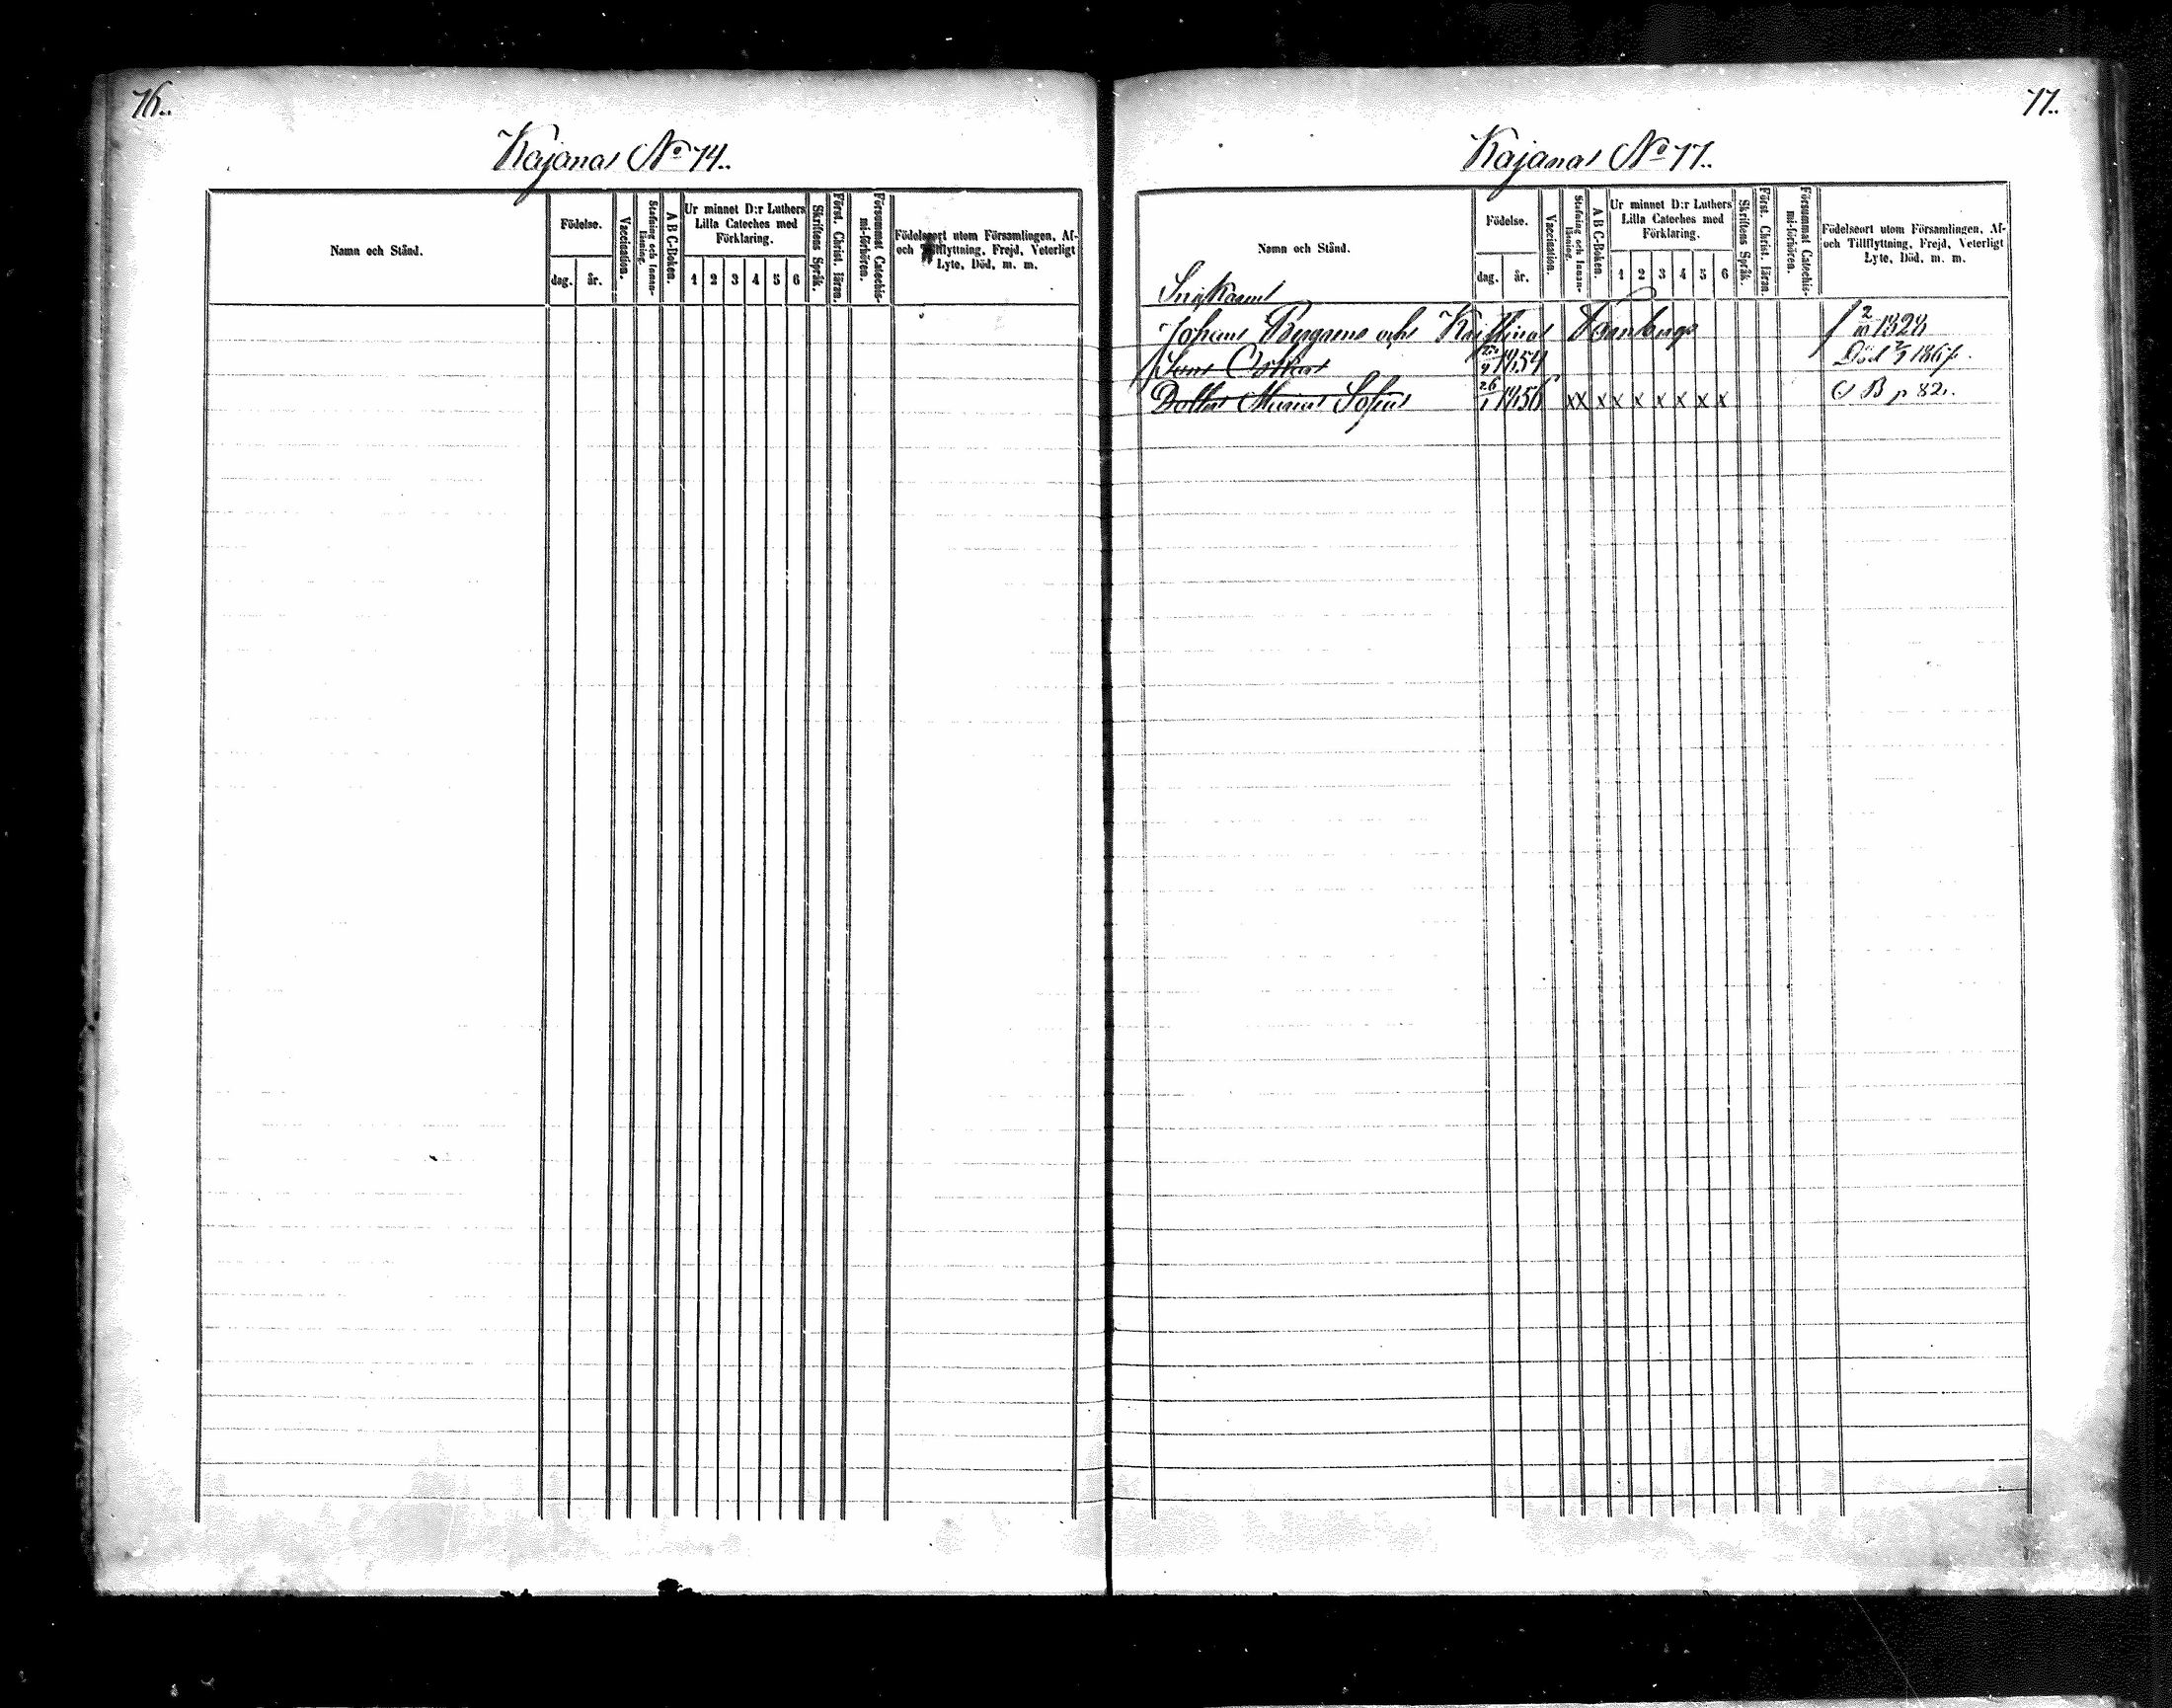 76..
Kajana No 14..
Namn och Stånd.
Födelse.
dag.
år.
Vaccination.
Stafning och Innan-
läsning.
A B C-Boken.
Ur minnet D:r Luthers
Lilla Cateches med
Förklaring.
1 2 3 4 5 6
Skriftens Språk.
Först. Christ. läran.
Försummat Catechis-
mi-förhören.
Födelseort utom Församlingen, Af-
och Tillflyttning, Frejd, Veterligt
Lyte, Död, m. m.
77..
Kajana No 17..
Namn och Stånd.
Födelse.
dag.
år.
Vaccination.
Stafning och Innan-
läsning.
A B C-Boken.
Ur minnet D:r Luthers
Lilla Cateches med
Förklaring.
1 2 3 4 5 6
Skriftens Språk.
Först. Christ. läran.
Försummat Catechis-
mi-förhören.
Födelseort utom Församlingen, Af-
och Tillflyttning, Frejd, Veterligt
Lyte, Död, m. m.
Johan och 2/10 1828
Son Oskar 1854 Död 1867.
Dotter Maria Sofia 26/1 1856 x x x x x x x x x B p 82.